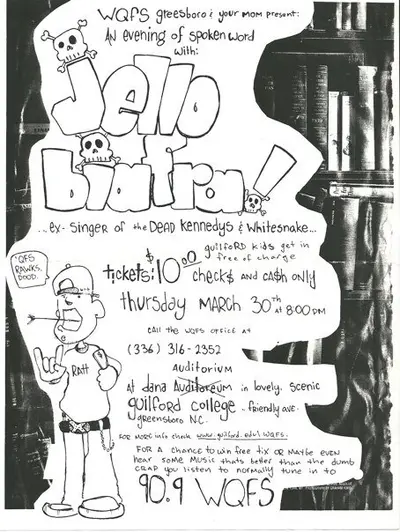 WQFS greesboro & your mom present:
AN evening of spoken word
with:
Jello
biafra!
...ex-singer of the DEAD Kennedys & Whitesnake...
guilfoRD kids get in
free of charge
tickets: $10.00 check$ and ca$h only
thursday MARCH 30th at 8:00 PM
CALL the WQFS office at
(336) 316-2352
Auditorium
At dana Auditoreum in lovely, scenic
guilford college - friendly ave.
greensboro N.C.
FOR MORE info check www.guilford.edu/WQFS.
FOR A chance to win free tix OR MAYBE EVEN
hear some MUSIC thats better than the dumb
CRAP you listen to normally tune in to
90.9 WQFS
'QFS
RAWKS,
DOOD.
RATT